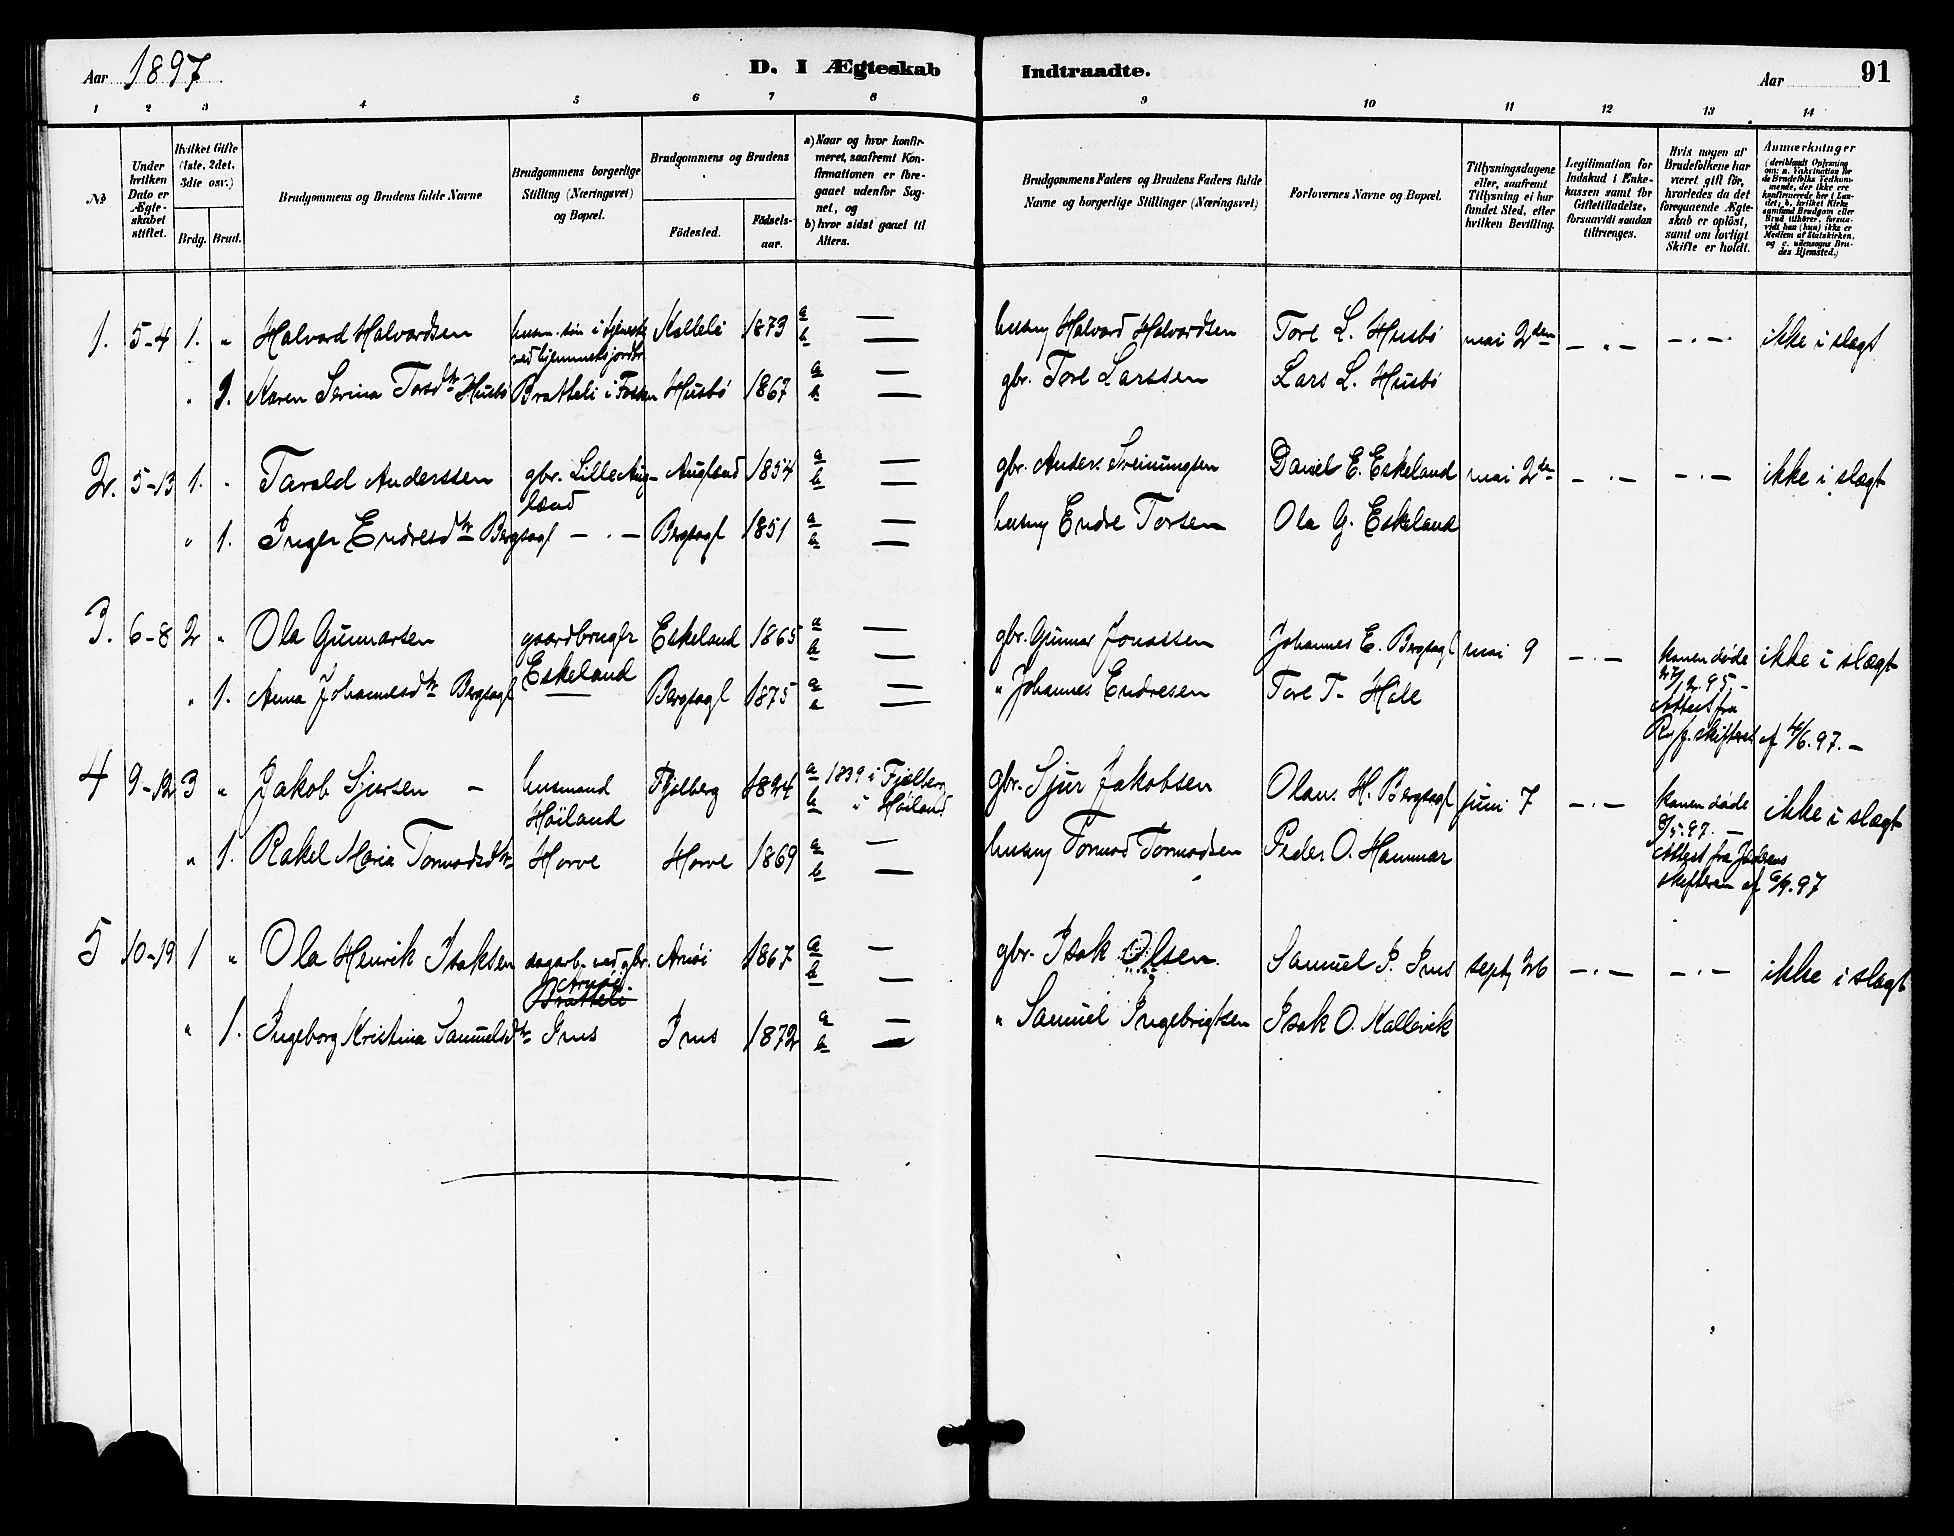 Aar 1897
D. I Ægteskab
Indtraadte.
Aar
91
1 2 3 4 5 6 7 8 9 10 11 12 13 14
№
Under hvilken Dato er Ægteskabet stiftet.
Hvilket Gifte (1ste, 2det, 3die osv.)
Brdg. Brud.
Brudgommens og Brudens fulde Navne
Brudgommens borgerlige Stilling (Næringsvei) og Bopæl.
Brudgommens og Brudens
Födested.
Födsels-aar.
a) Naar og hvor konfirmeret, saafremt Konfirmationen er foregaaet udenfor Sognet, og
b) hvor sidst gaaet til Alters.
Brudgommens Faders og Brudens Faders fulde Navne og borgerlige Stillinger (Næringsvei)
Forlovernes Navne og Bopæl.
Tillysningsdagene eller, saafremt Tillysning ei har fundet Sted, efter hvilken Bevilling.
Legitimation for Indskud i Enkekassen samt for Giftetilladelse, forsaavidt saadan tiltrænges.
Hvis nogen af Brudefolkene har været gift för, hvorledes da det foregaaende Ægteskab er oplöst, samt om lovligt Skifte er holdt.
Anmærkninger
1. 5-4 1. " Halvard Halvardsen husm. søn i tjeneste ved hjemmets jordbr. Kalleli 1873 a — b — husmd Halvard Halvardsen Tore L. Husbø mai 2den – " – – . – ikke i slagt
" 2. Karen Serina Torsdtr Husbø Bratteli i Fossan Husbø 1867 a — b — gbr. Tore Larssen Lars L. Husbø
2. 5-13 1. " Tarald Anderssen gbr. Lille Augland Augland 1854 a — b — gbr. Anders Sveinungsen Daniel E. Eskeland mai 2den – . – – . – ikke i slagt
" 1. Inger Endresdtr Bergsagl – . – Bergsagl 1851 a — b — husmd Endre Torsen Ola G. Eskeland
3. 6-8 2 " Ola Gunnarsen gaardbruger Eskeland Eskeland 1865 a — b — gbr. Gunnar Jonassen Johannes E. Bergsagl mai 9 – . – konen døde 27/2.95 – Attest fra Ryf. skifteret af 4/6.97. – ikke i slagt
" 1. Anna Johannesdtr Bergsagl Bergsagl 1875 a — a — " Johannes Endresen Tore T. Hole
4 9-12 3 " Jakob Sjursen – husmand Høiland Fjelberg 1824 a 1839 i Fjelberg b i Høiland gbr. Sjur Jakobsen Olaus H. Bergsagl juni 7 – . – konen døde 9/5.97. – Attest fra Jæderens skifteren af 9/9.97 ikke i slagt
" 1. Rakel Maria Tormodsdtr Horve Horve 1869 a — b — husmd Tormod Tormodsen Peder O. Hammar
5 10-19 1 " Ola Henrik Isaksen dagarb. ved gbr. Arnøi Bratteli Arnøi 1867 a — b — gbr. Isak Olsen Samuel I. Ims sept 26 – . – – . – ikke i slagt
" 1. Ingeborg Kristina Samuelsdtr Ims Ims 1872 a — b — " Samuel Ingebrigtsen Isak O. Kallevik